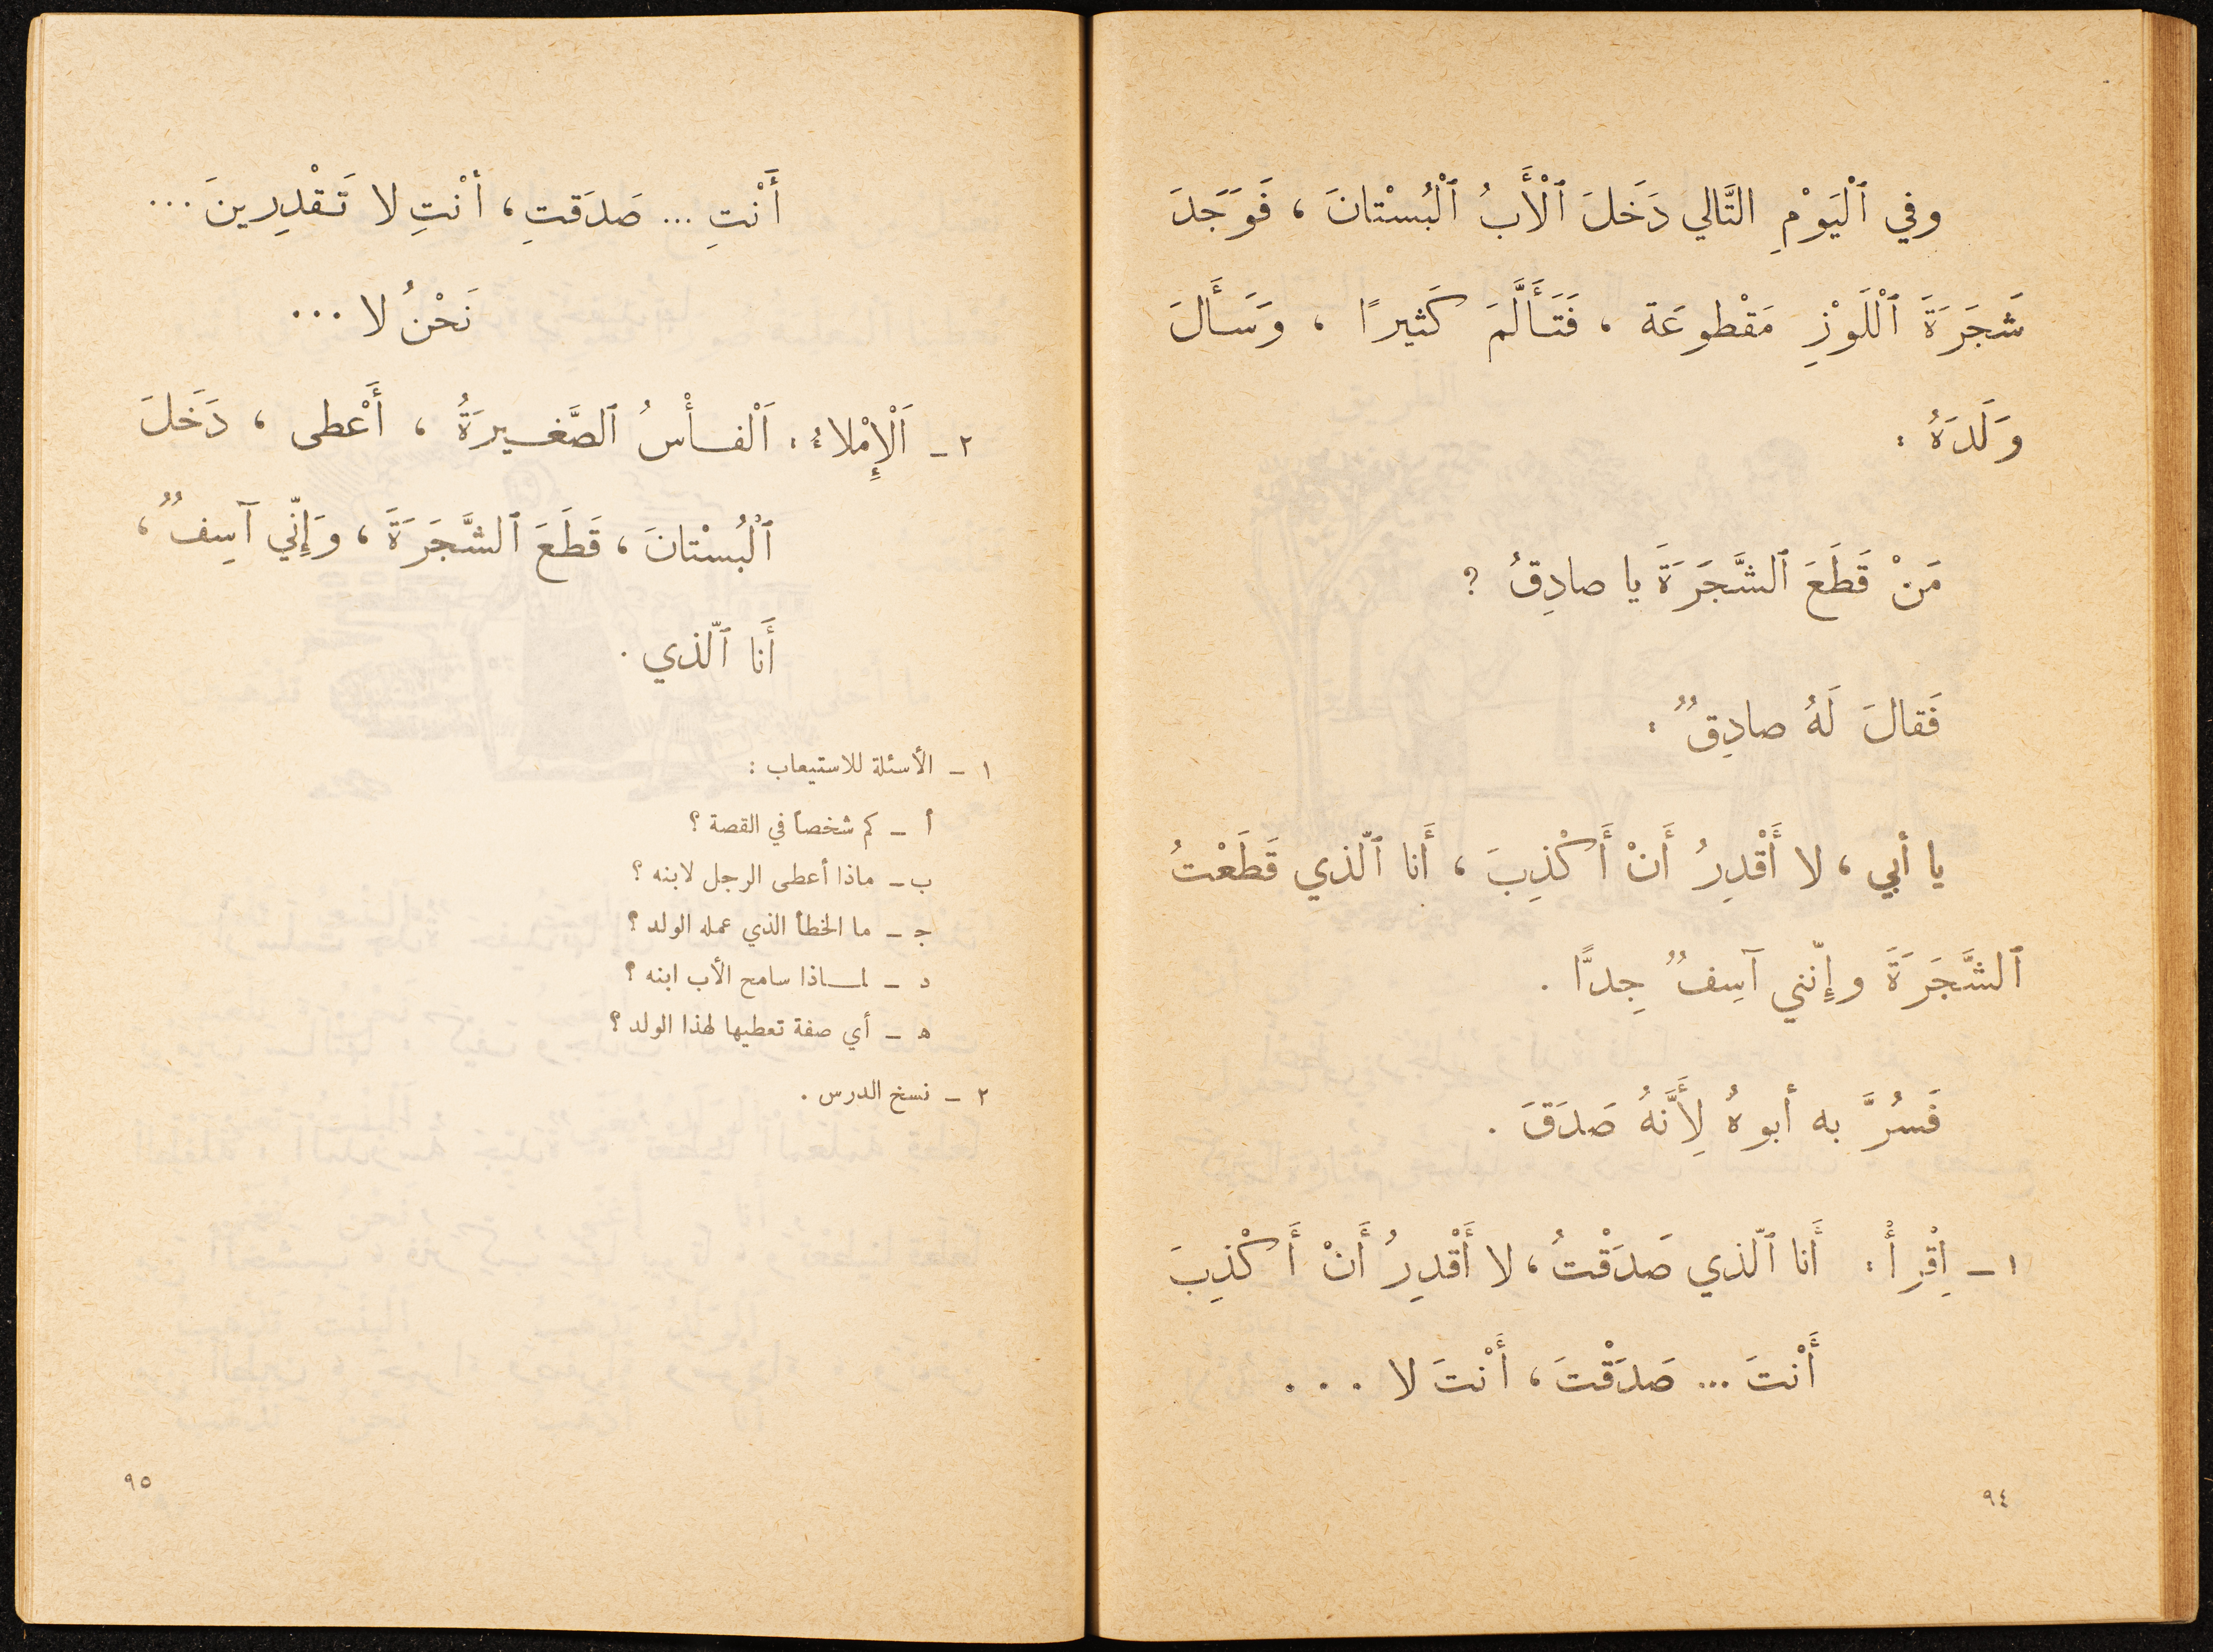 وفي ٱلْيَوْمِ التَّالي دَخَلَ ٱلْأَبُ ٱلْبُسْتانَ ، فَوَجَدَ
شَجَرَةَ ٱلْلَوْزِ مَقْطوعَة ، فَتَأَلَّمَ كَثيرًا ، وَسَأَلَ
وَلَدَهُ :
مَنْ قَطَعَ ٱلشَّجَرَةَ يا صادِقُ ؟
فَقالَ لَهُ صادِقٌ :
يا أبي ، لا أَقْدِرُ أَنْ أَكْذِبَ ، أَنا ٱلّذي قَطَعْتُ
ٱلشَّجَرَةَ وإِنّني آسِفٌ جِدًّا .
فَسُرَّ به أبوهُ لِأَنَّهُ صَدَقَ .
١ – اِقْرأْ : أَنا ٱلّذي صَدَقْتُ ، لا أَقْدِرُ أَنْ أَكْذِبَ
أَنْتَ ... صَدَقْتَ ، أَنْتَ لا ...
٩٤
أَنْتِ ... صَدَقتِ ، أنْتِ لا تَقْدِرينَ ...
نَحْنُ لا ...
٢ – اَلْإِمْلاءُ : اَلْفأْسُ ٱلصَّغيرَةُ ، أَعْطى ، دَخَلَ
ٱلْبُسْتانَ ، قَطَعَ ٱلشَّجَرَةَ ، وَإِنّي آسِفٌ ،
أَنا ٱلّذي .
١ – الأسئلة للاستيعاب :
أ – كم شخصاً في القصة ؟
ب – ماذا أعطى الرجل لابنه ؟
ج – ما الخطأ الذي عمله الولد ؟
د – لماذا سامح الأب ابنه ؟
ه – أي صفة تعطيها لهذا الولد ؟
٢ – نسخ الدرس .
٩٥